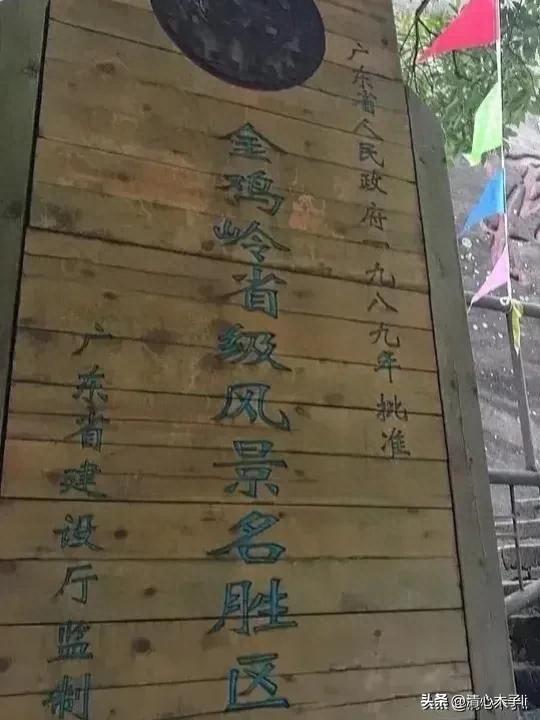 广东省人民政府一九八九年批准
金鸡岭省级风景名胜区
广东省建设厅监制
头条 @清心木子li